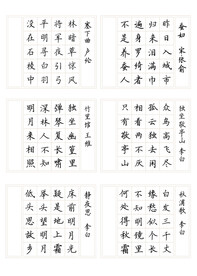 塞下曲 卢纶
林暗草惊风
将军夜引弓
平明寻白羽
没在石棱中
蚕妇 宋 张俞
昨日入城市
归来泪满巾
遍身罗绮者
不是养蚕人
竹里馆 王维
独坐幽篁里
弹琴复长啸
深林人不知
明月来相照
独坐敬亭山 李白
众鸟高飞尽
孤云独去闲
相看两不厌
只有敬亭山
静夜思 李白
床前明月光
疑是地上霜
举头望明月
低头思故乡
秋浦歌 李白
白发三千丈
缘愁似个长
不知明镜里
何处得秋霜